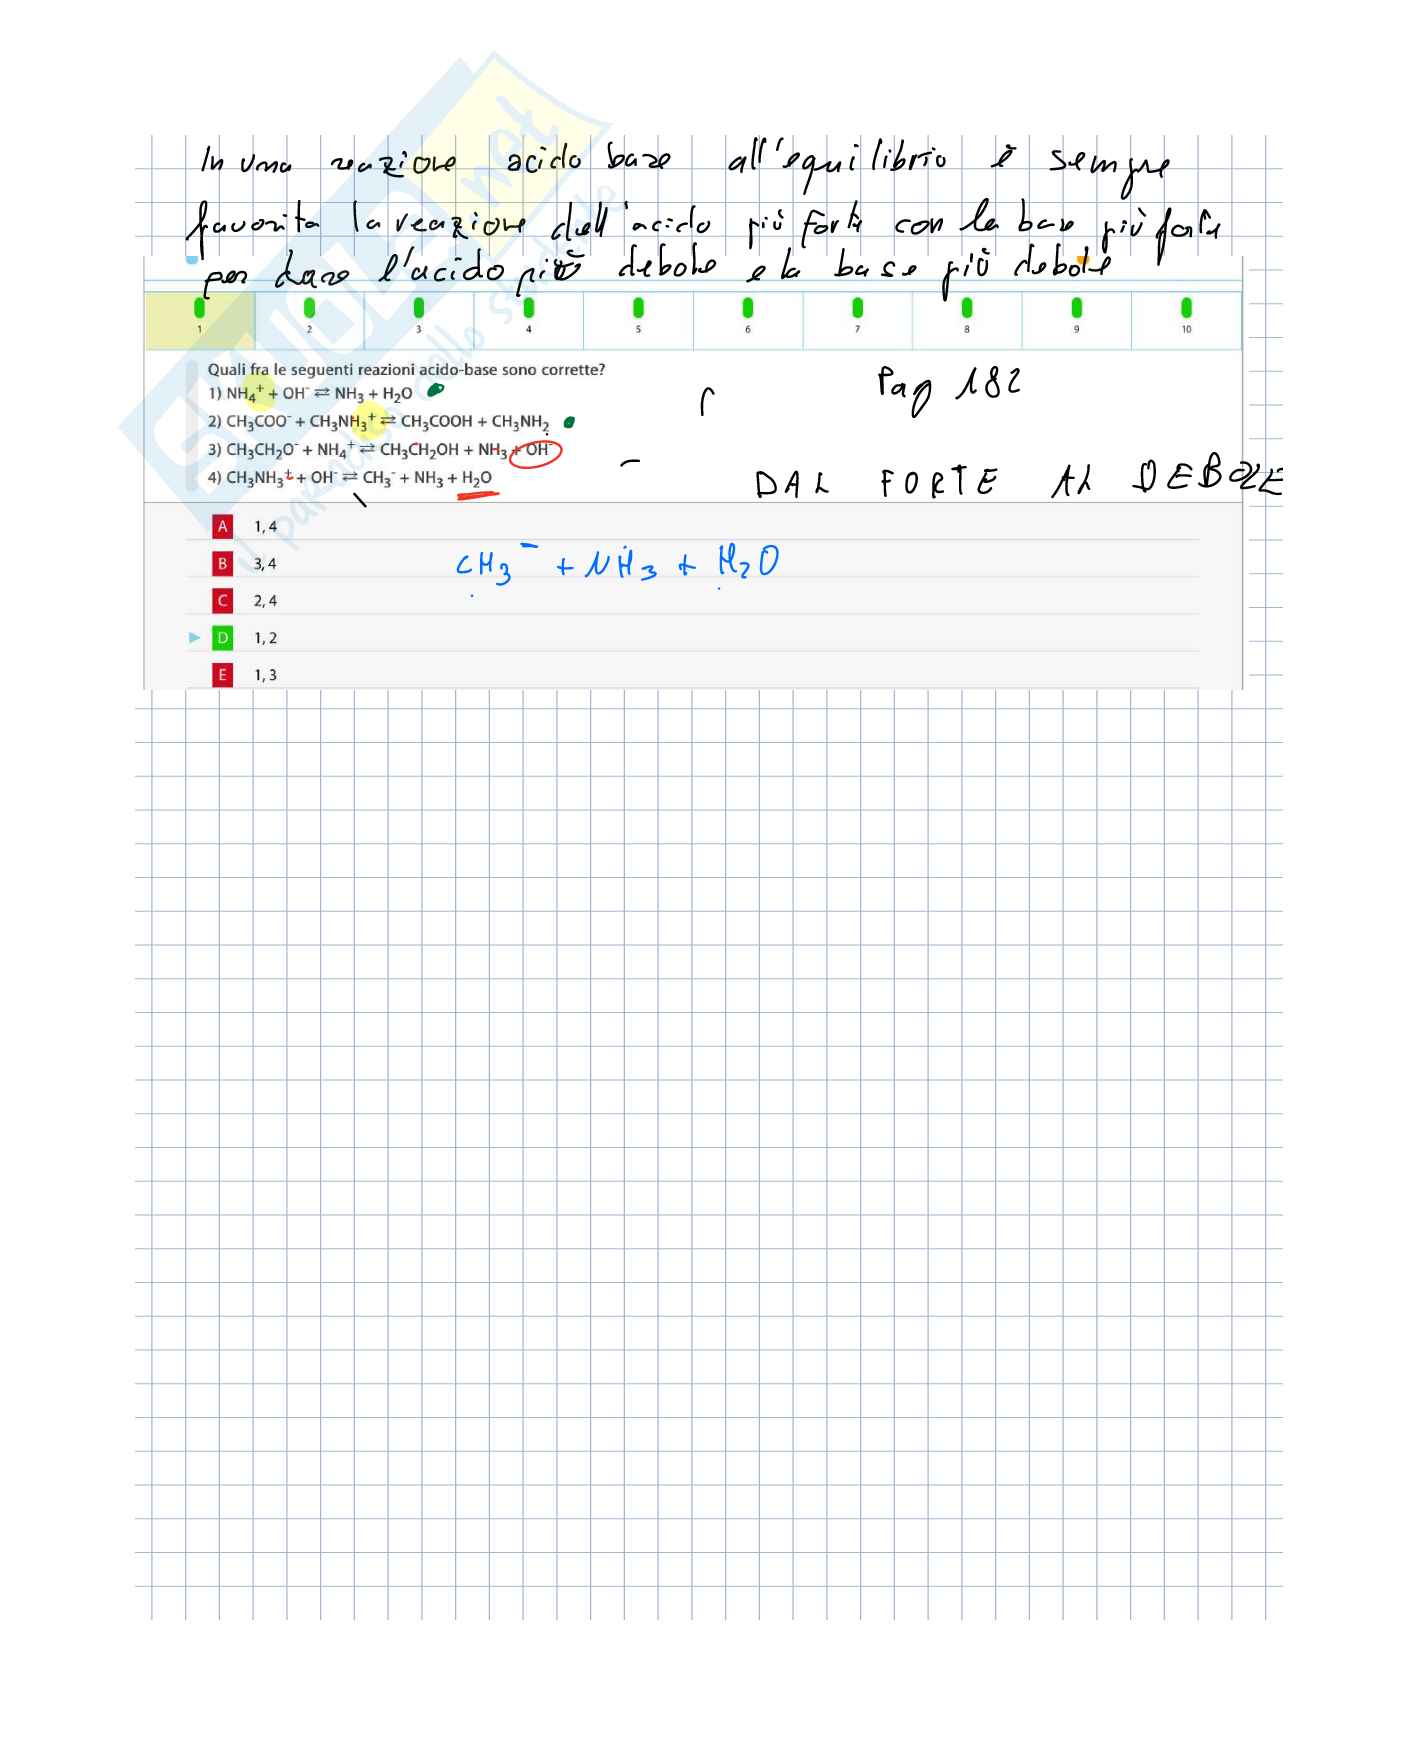 In una reazione acido base all'equilibrio è sempre
favorita la reazione dell'acido più forte con la base più forte
per dare l'acido più debole e la base più debole
1 2 3 4 5 6 7 8 9 10
Quali fra le seguenti reazioni acido-base sono corrette?
Pag 182
1) NH₄⁺ + OH⁻ ⇌ NH₃ + H₂O
2) CH₃COO⁻ + CH₃NH₃⁺ ⇌ CH₃COOH + CH₃NH₂
3) CH₃CH₂O⁻ + NH₄⁺ ⇌ CH₃CH₂OH + NH₃ + OH⁻
4) CH₃NH₃⁺ + OH⁻ ⇌ CH₃⁻ + NH₃ + H₂O
DAL FORTE AL DEBOLE
A 1, 4
B 3, 4
CH₃⁻ + NH₃ + H₂O
C 2, 4
D 1, 2
E 1, 3